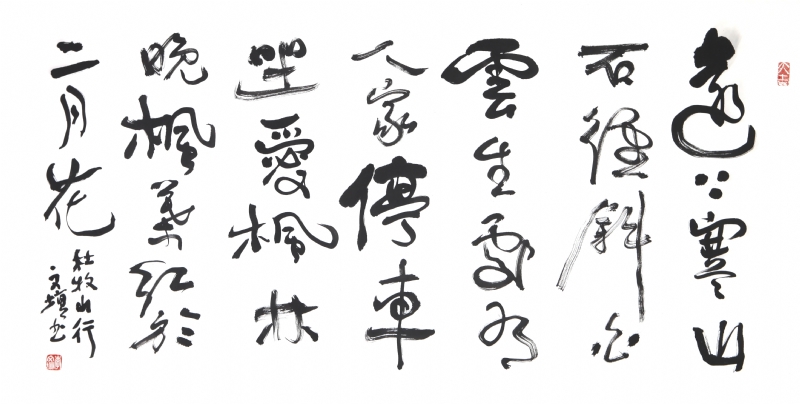 遠上寒山
石徑斜白
雲生處有
人家停車
坐愛楓林
晚楓葉紅於
二月花
杜牧山行
文書